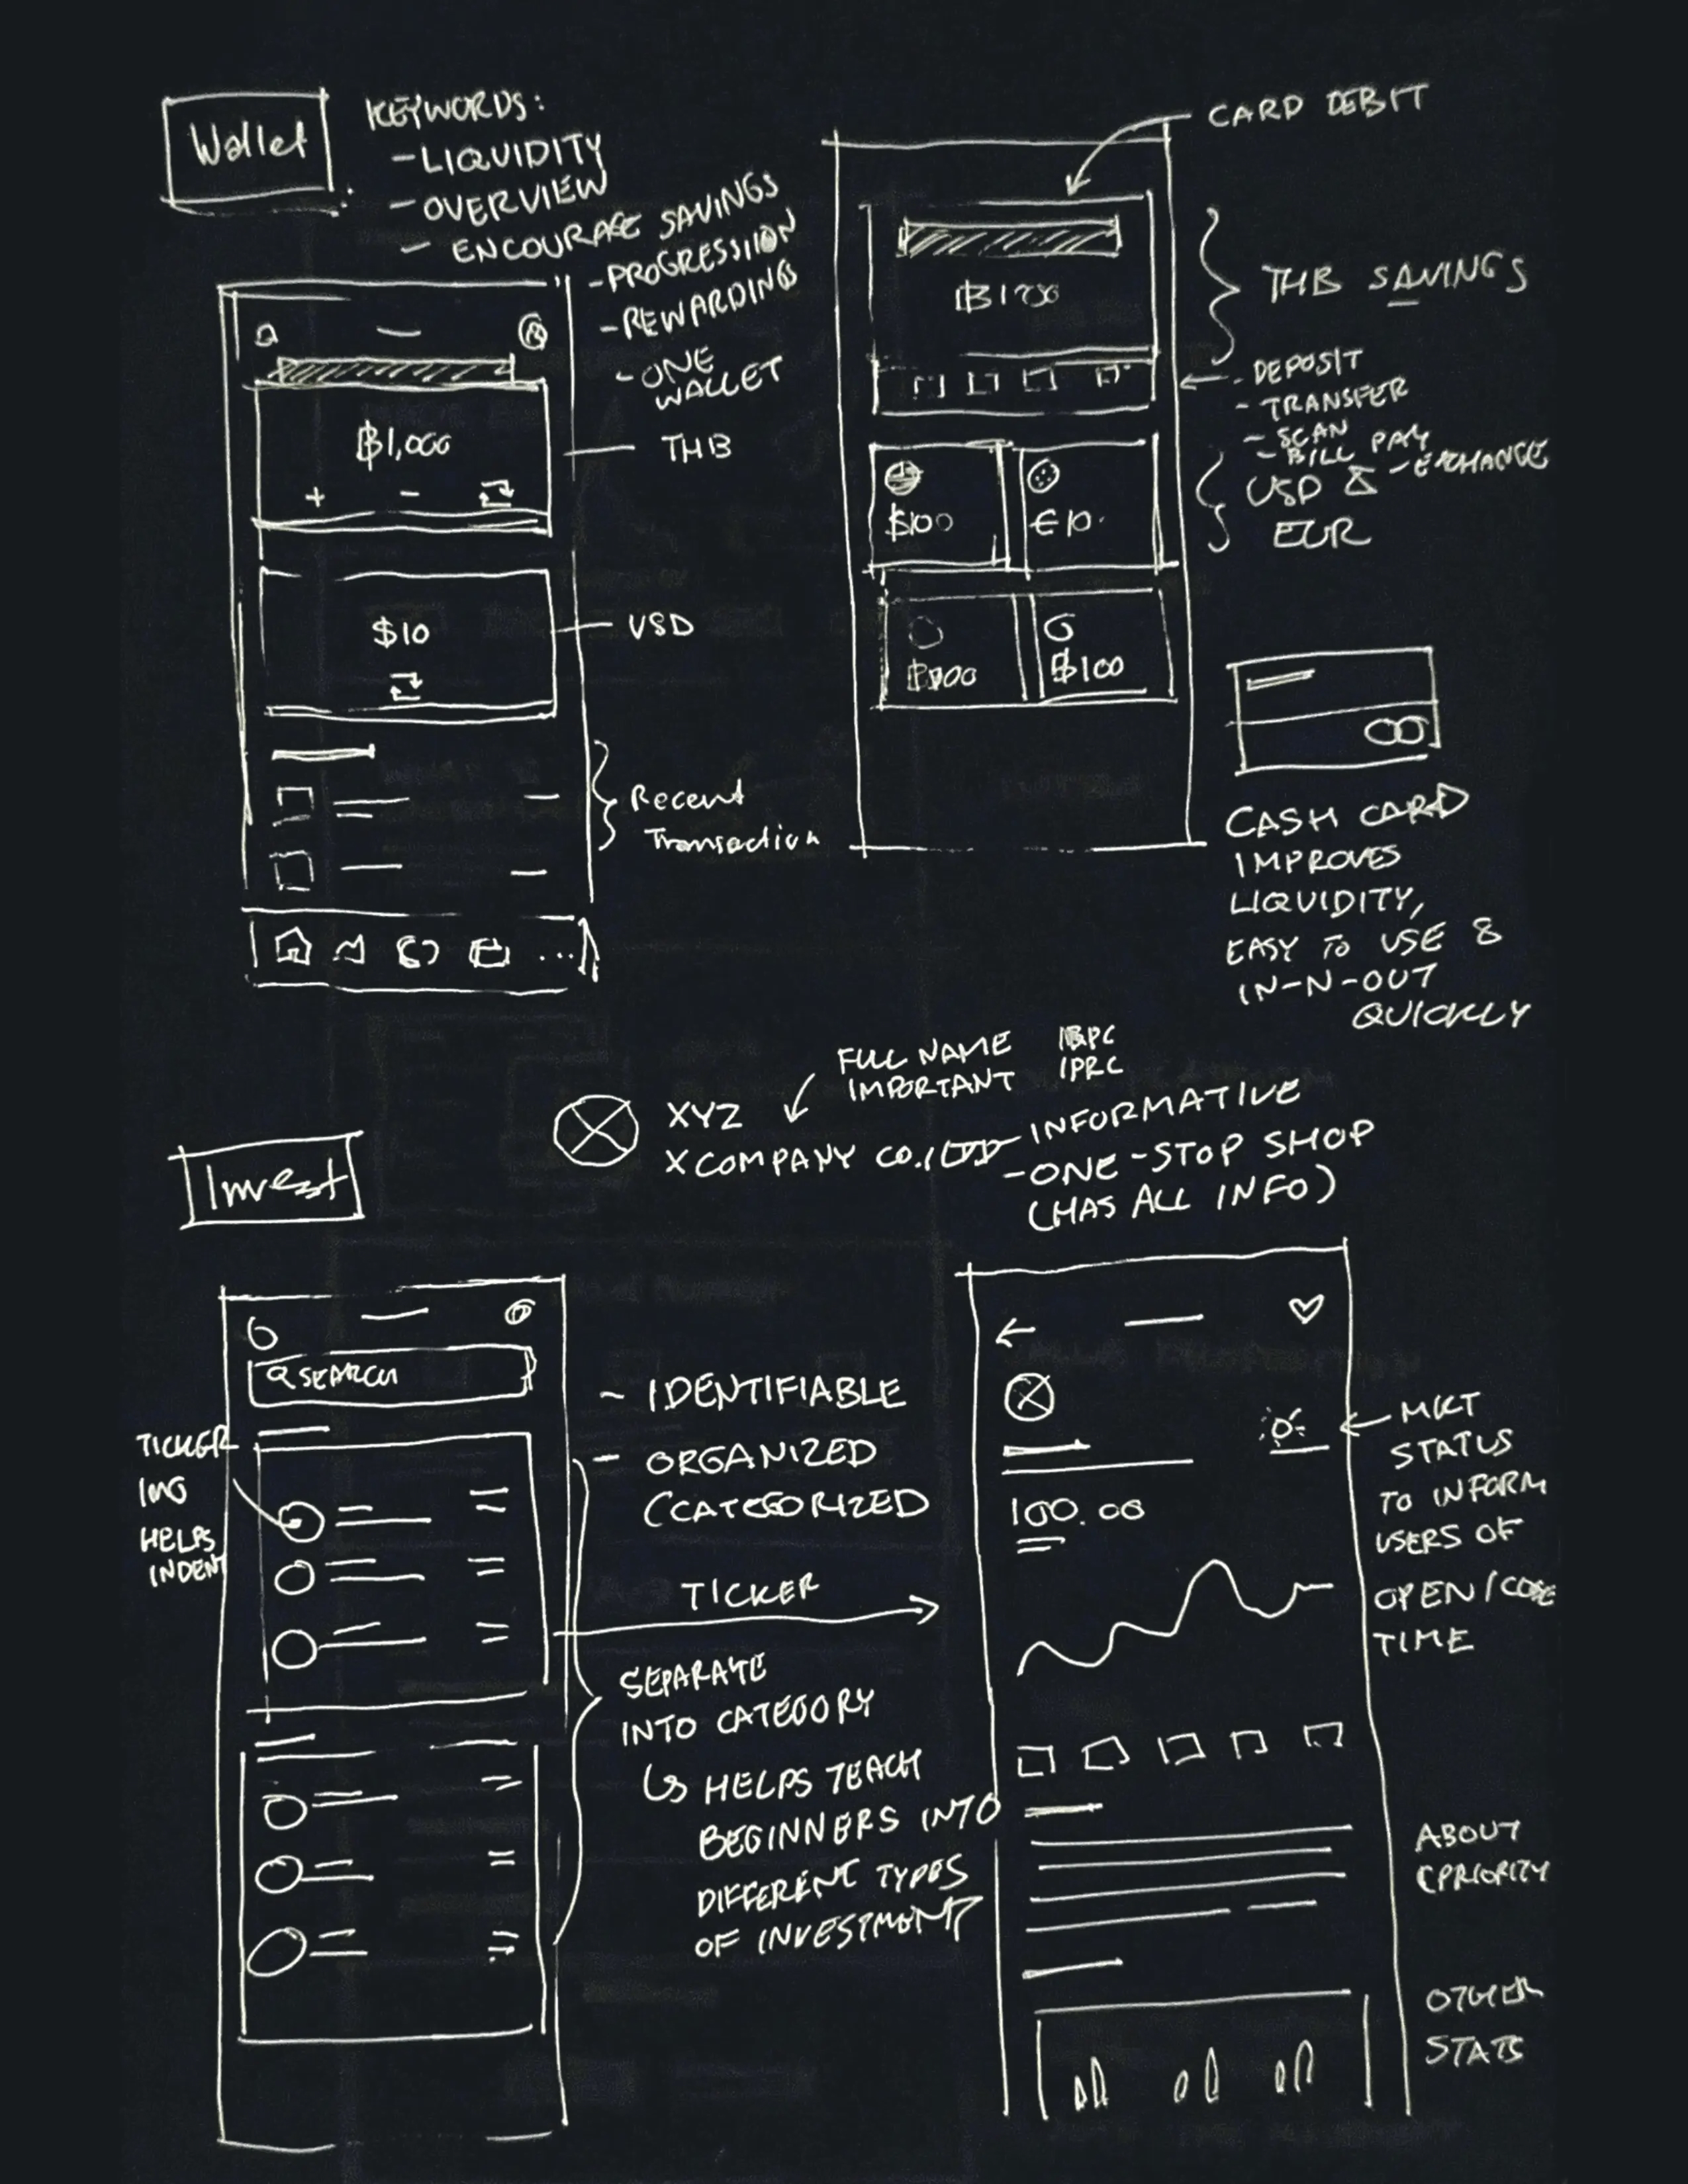 Wallet
KEYWORDS:
- LIQUIDITY
- OVERVIEW
- ENCOURAGE SAVINGS
- PROGRESSION
- REWARDINGS
- ONE
WALLET
฿1,000
+ -
THB
$10
USD
Recent
Transaction
...
CARD DEBIT
THB SAVINGS
- DEPOSIT
- TRANSFER
- SCAN
- BILL PAY
- EXCHANGE
USD &
EUR
$100
€10.
฿100
CASH CARD
IMPROVES
LIQUIDITY,
EASY TO USE &
IN-N-OUT
QUICKLY
FULL NAME
IMPORTANT
IPRC
XYZ
X COMPANY CO.
- INFORMATIVE
- ONE-STOP SHOP
(HAS ALL INFO)
Invest
SEARCH
TICKER
IMG
HELPS
INDENT
- IDENTIFIABLE
- ORGANIZED
(CATEGORIZED
TICKER
SEPARATE
INTO CATEGORY
HELPS TEACH
BEGINNERS INTO
DIFFERENT TYPES
OF INVESTMENT
100.00
MKT
STATUS
TO INFORM
USERS OF
OPEN/CLOSE
TIME
ABOUT
(PRIORITY
OTHER
STATS